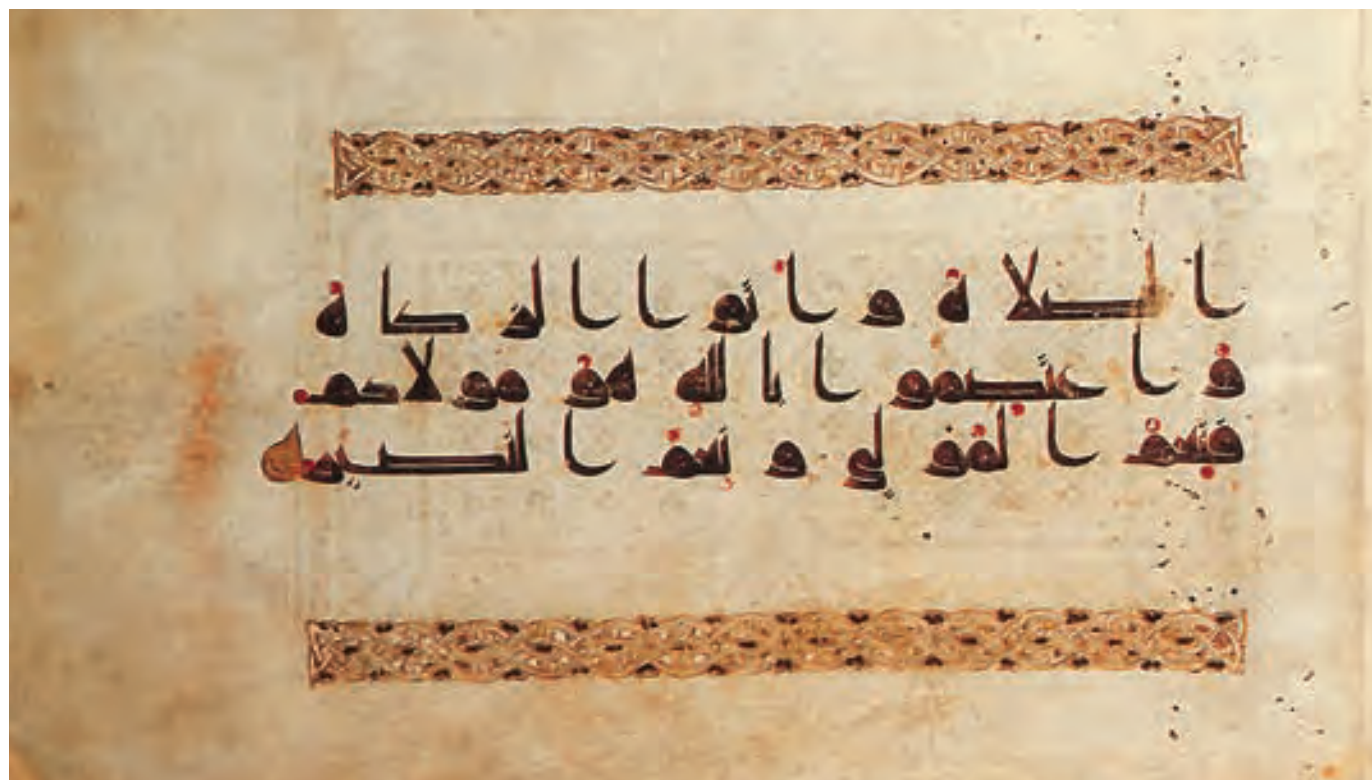 ا الصلاة واتوا الزكاة
واعتصموا بالله هو مولاكم
فنعم المولى ونعم النصير